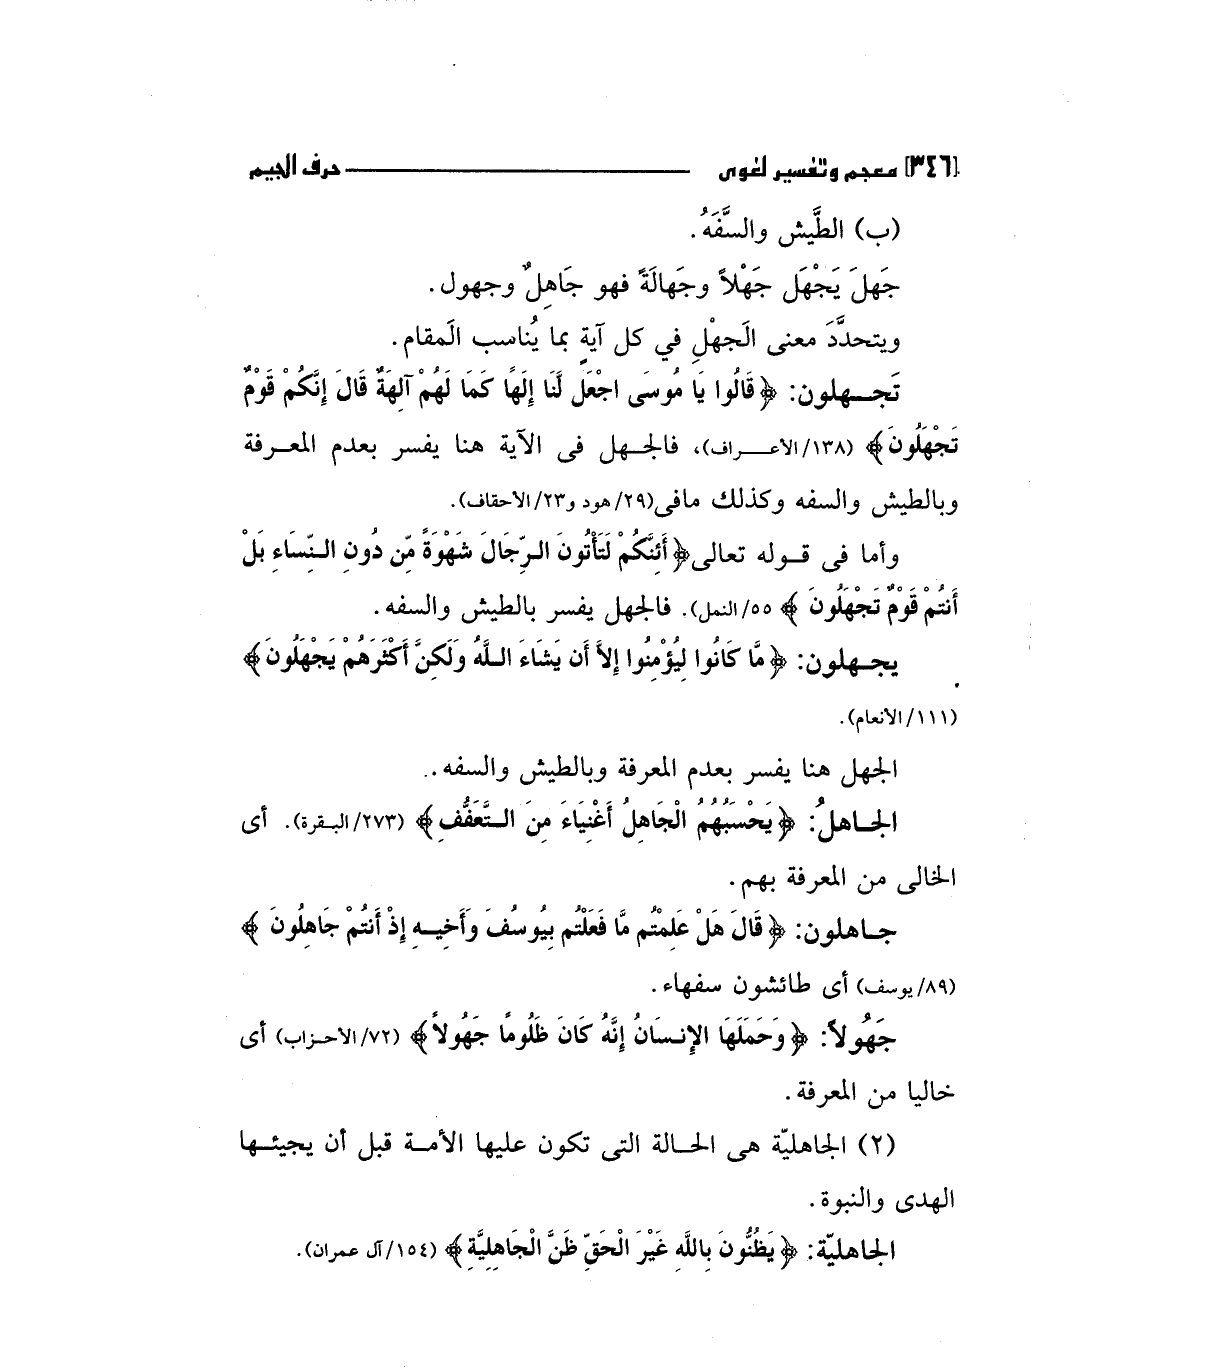 [٣٤٦] معجم وتفسير لغوى حرف الجيم
(ب) الطَّيش والسَّفَهُ.
جَهلَ يَجْهَل جَهْلاً وجَهالَةً فهو جَاهِلٌ وجهول.
ويتحدَّدَ معنى الَجهْلِ في كل آيةٍ بما يُناسب الَمقام.
تَجـهلون: ﴿قَالُوا يَا مُوسَى اجْعَل لَّنَا إِلَهًا كَمَا لَهُمْ آلِهَةٌ قَالَ إِنَّكُمْ قَوْمٌ
تَجْهَلُونَ﴾ (١٣٨/الأعـراف)، فالجـهل فى الآية هنا يفسر بعدم المعـرفة
وبالطيش والسفه وكذلك مافى(٢٩/هود و٢٣/الأحقاف).
وأما فى قـوله تعالى﴿أَئِنَّكُمْ لَتَأْتُونَ الـرِّجَالَ شَهْوَةً مِّن دُونِ الـنِّسَاءِ بَلْ
أَنتُمْ قَوْمٌ تَجْهَلُونَ ﴾ ٥٥/النمل). فالجهل يفسر بالطيش والسفه.
يجـهلون: ﴿مَّا كَانُوا لِيُؤْمِنُوا إِلاَّ أَن يَشَاءَ الـلَّهُ وَلَكِنَّ أَكْثَرَهُمْ يَجْهَلُونَ﴾
(١١١/الأنعام).
الجهل هنا يفسر بعدم المعرفة وبالطيش والسفه.
الجـاهلُ: ﴿يَحْسَبُهُمُ الْجَاهِلُ أَغْنِيَاءَ مِنَ الـتَّعَفُّفِ﴾ (٢٧٣/البـقرة). أى
الخالى من المعرفة بهم.
جـاهلون: ﴿قَالَ هَلْ عَلِمْتُم مَّا فَعَلْتُم بِيُوسُفَ وَأَخِيـهِ إِذْ أَنتُمْ جَاهِلُونَ ﴾
(٨٩/يوسف) أى طائشون سفهاء.
جَهُولاً: ﴿وَحَمَلَهَا الإِنـسَانُ إِنَّهُ كَانَ ظَلُومًا جَهُولاً﴾ (٧٢/الأحـزاب) أى
خاليا من المعرفة.
(٢) الجاهليّة هى الحـالة التى تكون عليها الأمـة قبل أن يجيئـها
الهدى والنبوة.
الجاهليّة: ﴿يَظُنُّونَ بِاللَّهِ غَيْرَ الْحَقِّ ظَنَّ الْجَاهِلِيَّةِ﴾ (١٥٤/آل عمران).